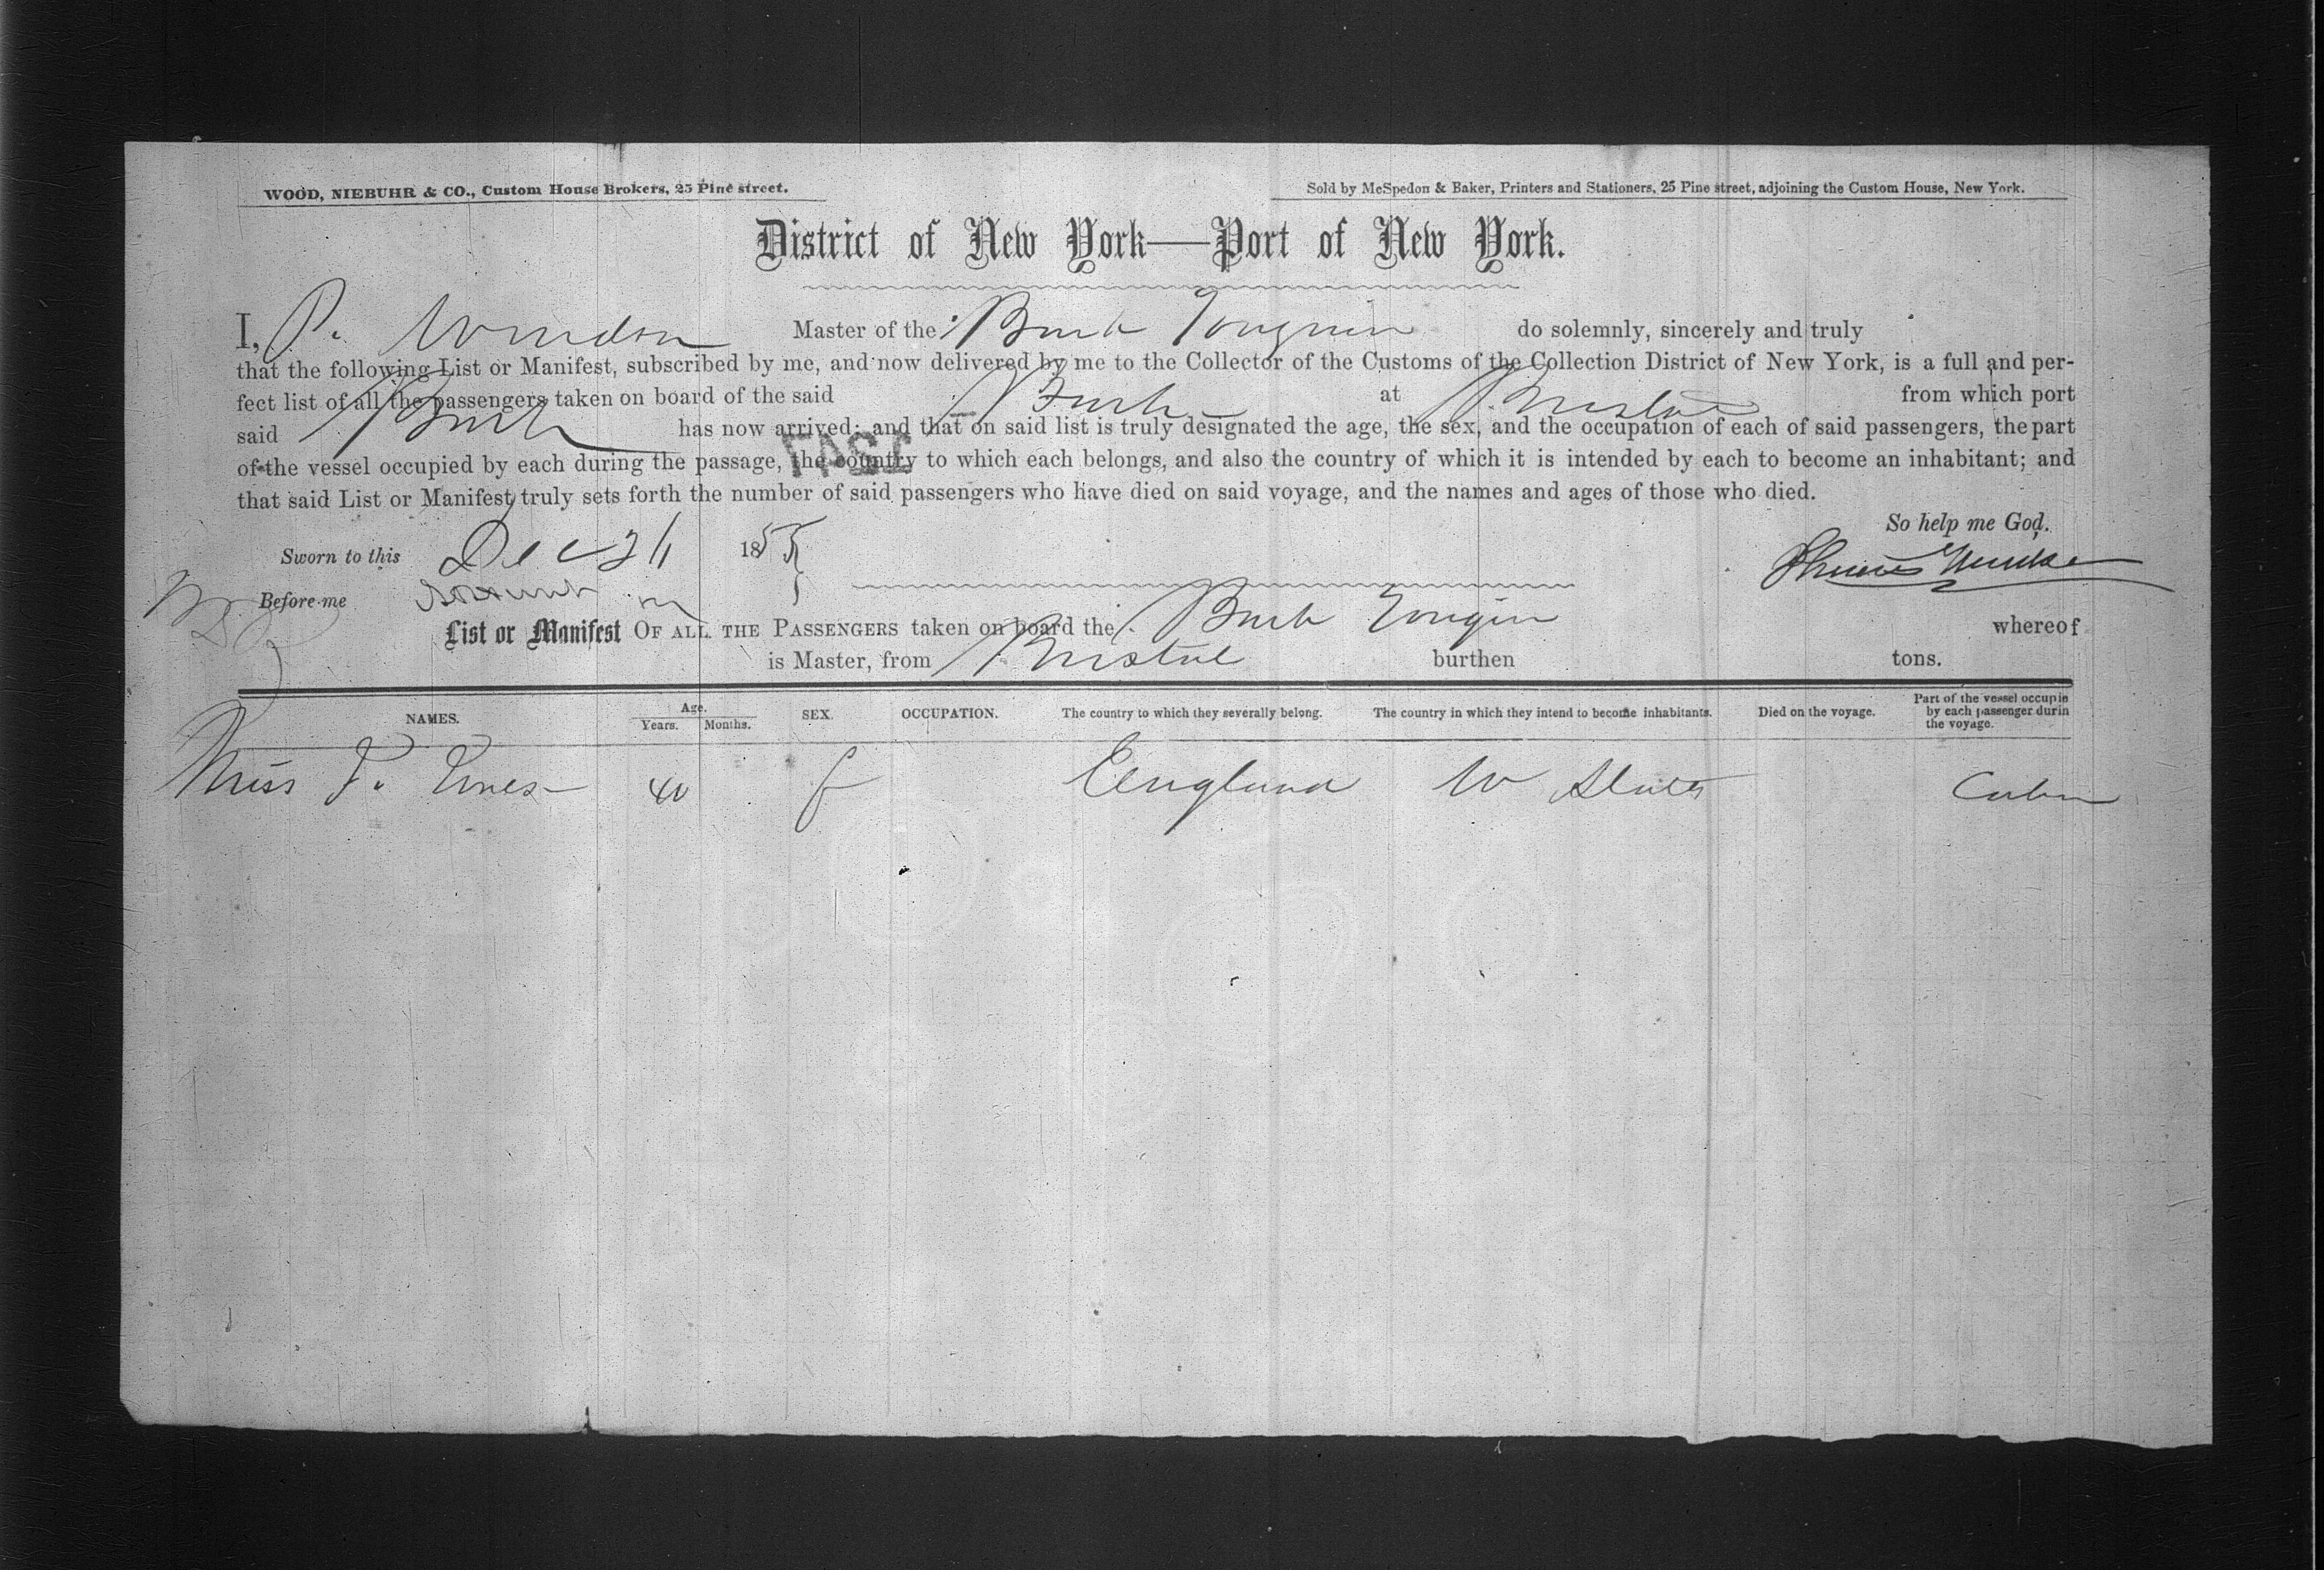 WOOD, NIEBUHR & CO., Custom House Brokers, 25 Pine street. Sold by McSpedon & Baker, Printers and Stationers, 25 Pine street, adjoining the Custom House, New York.
District of New York—Port of New York.
I, P. Master of the Bark do solemnly, sincerely and truly
that the following List or Manifest, subscribed by me, and now delivered by me to the Collector of the Customs of the Collection District of New York, is a full and per-
fect list of all the passengers taken on board of the said Bark at Bristol from which port
said Bark has now arrived; and that on said list is truly designated the age, the sex, and the occupation of each of said passengers, the part
of the vessel occupied by each during the passage, the country to which each belongs, and also the country of which it is intended by each to become an inhabitant; and
that said List or Manifest truly sets forth the number of said passengers who have died on said voyage, and the names and ages of those who died.
So help me God.
Sworn to this Dec 1855
Before me
List or Manifest OF ALL THE PASSENGERS taken on board the Bark whereof
is Master, from Bristol burthen tons.
NAMES. Age. Years. Months. SEX. OCCUPATION. The country to which they severally belong. The country in which they intend to become inhabitants. Died on the voyage. Part of the vessel occupie by each passenger durin the voyage.
Miss 40 f England U States Cabin